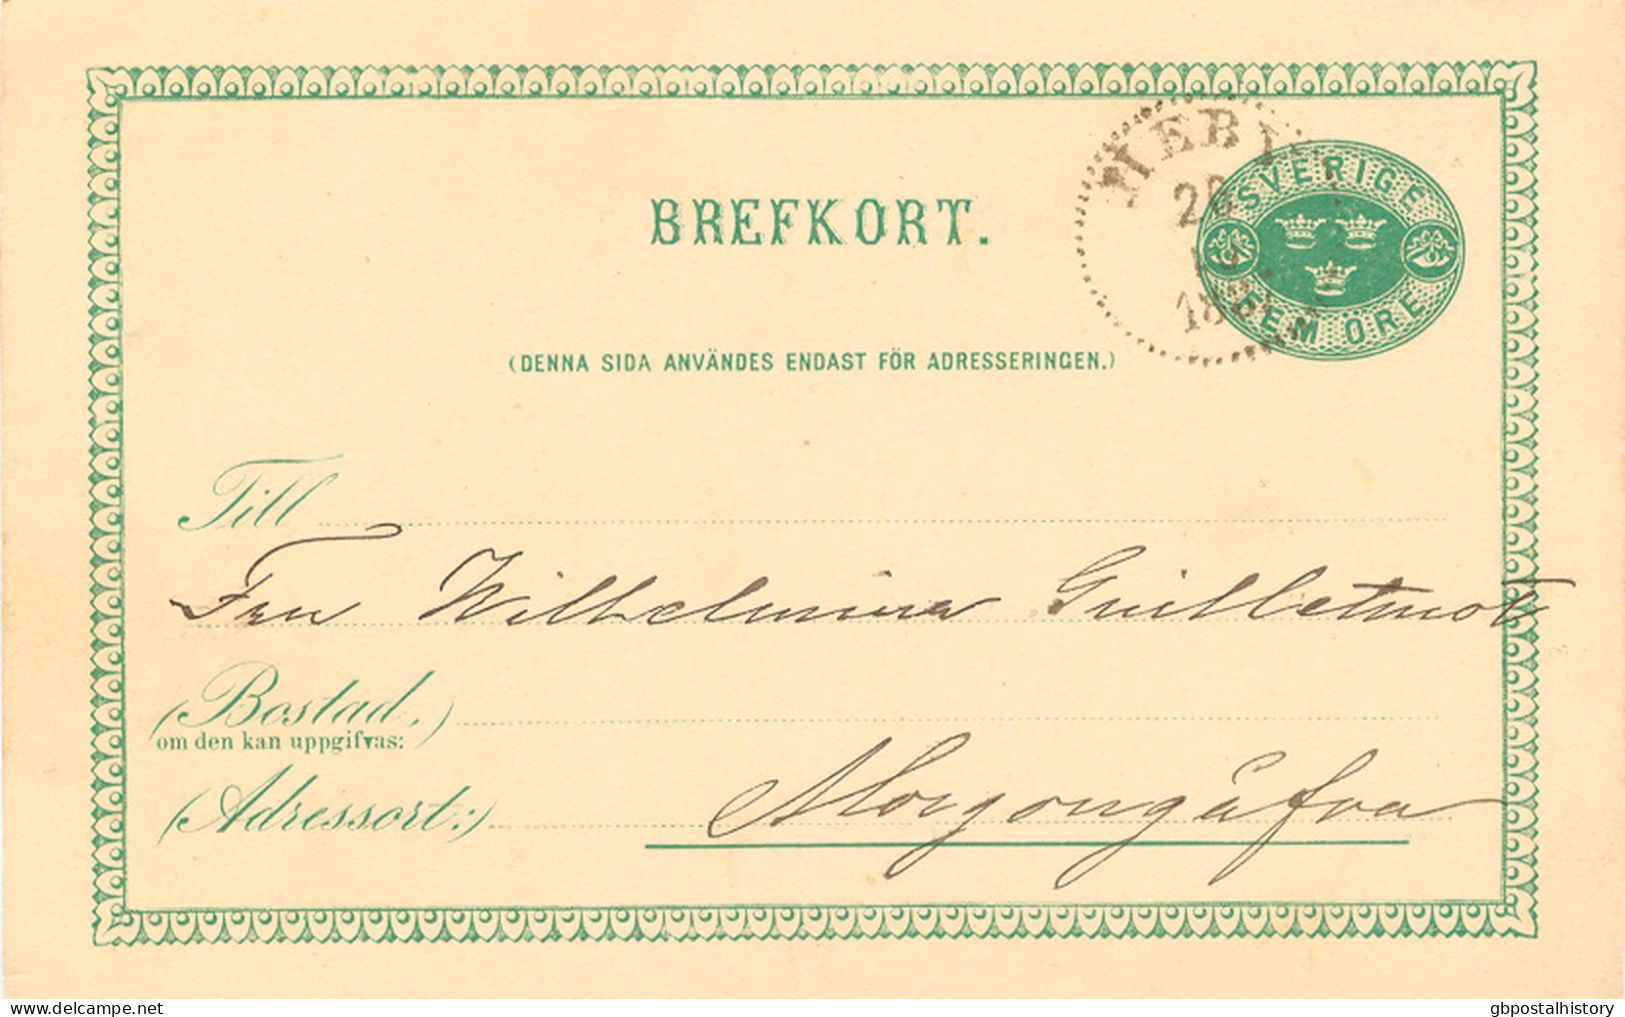 BREFKORT.
SVERIGE
FEM ÖRE
20
(DENNA SIDA ANVÄNDES ENDAST FÖR ADRESSERINGEN.)
Till
Fru Wilhelmina Guilletmot
(Bostad,)
om den kan uppgifvas:
(Adressort:)
Morgongåfva
www.delcampe.net
gbpostalhistory